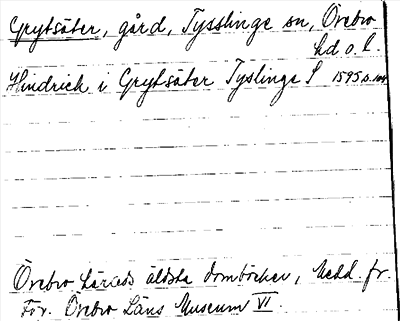 Grytsäter, gård, Tysslinge sn, Örebro
hd o. l.
Hindrich i Grytsäter Tyslinge S 1595 s. 104
Örebro Läns äldsta domböcker, Medd. fr.
För. Örebro Läns Museum VI.